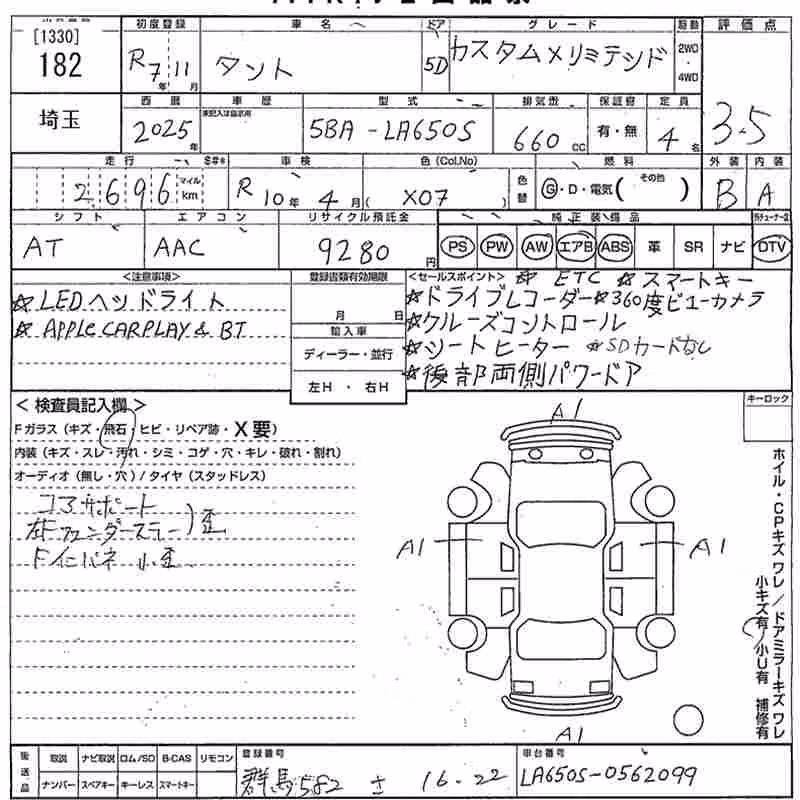 [1330]
182
初度登録 車名 ドア グレード 駆動 評価点
R7年11月 タント 5D カスタムXリミテッド 2WD・4WD 3.5
埼玉
西暦 車歴 型式 排気量 保証書 定員
2025年 未記入は自家用 5BA-LA650S 660cc 有・無 4名
走行 S#* 車検 色(Col.No) 燃料 外装 内装
2696 マイル km R10年4月 (X07) 色替 G・D・電気 (その他) B A
シフト エアコン リサイクル預託金 純正装備品
AT AAC 9280円 PS PW AW エアB ABS 革 SR ナビ DTV
<注意事項> 登録書類有効期限 <セールスポイント> ☆ ETC ☆ スマートキー
☆LEDヘッドライト 月 日 ☆ドライブレコーダー☆360度ビューカメラ
☆APPLE CARPLAY & BT 輸入車 ☆クルーズコントロール
ディーラー・並行 ☆シートヒーター ☆SDカードなし
左H・右H ☆後部両側パワードア
<検査員記入欄> キーロック
Fガラス(キズ・飛石・ヒビ・リペア跡・X要)
内装(キズ・スレ・汚れ・シミ・コゲ・穴・キレ・破れ・割れ)
オーディオ(無し・穴)/タイヤ(スタッドレス)
コアサポート
右Fフェンダーステー)歪
Fインパネ 小歪
A1
A1 A1
A1
ホイル・CPキズワレ/ドアミラーキズワレ
小キズ有 小U有 補修有
後送品 取説 ナビ取説 ロム/SD B-CAS リモコン 登録番号 車台番号
ナンバー スペアキー キーレス スマートキー 群馬582 さ 16-22 LA650S-0562099